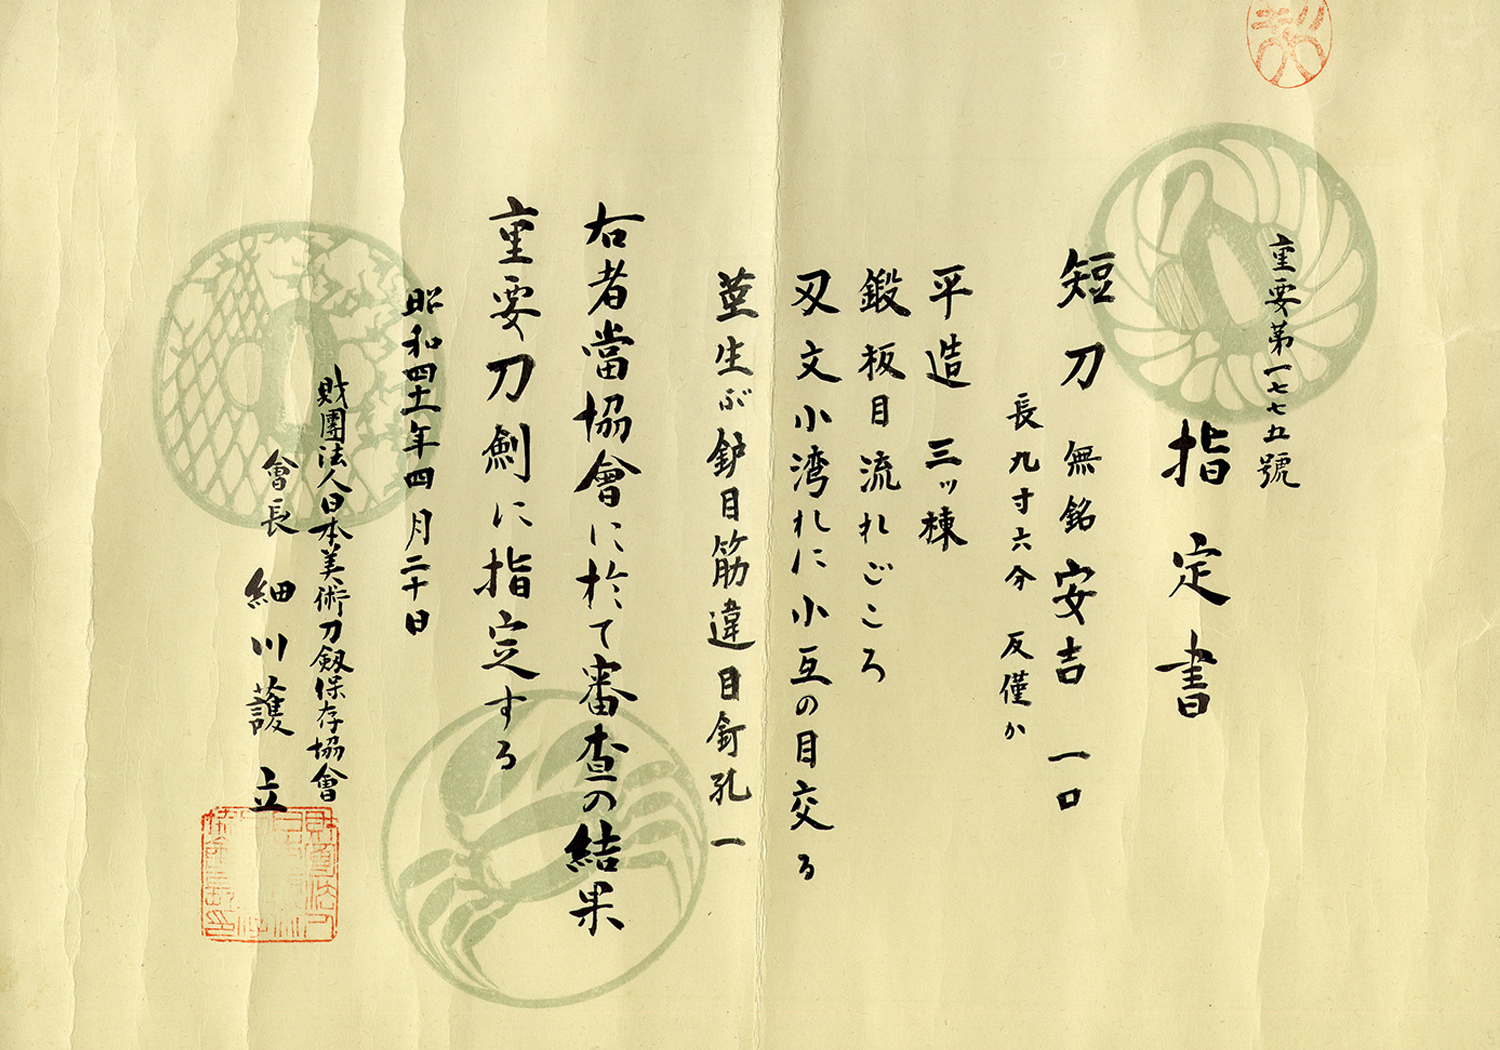 重要第一七七五號
指定書
短刀 無銘 安吉 一口
長九寸六分 反僅か
平造 三ッ棟
鍛板目流れごころ
刃文小湾れに小互の目交る
茎生ぶ鈩目筋違目釘孔一
右者當協會に於て審査の結果
重要刀劍に指定する
昭和四十一年四月二十日
財團法人日本美術刀剱保存協會
會長 細川護立